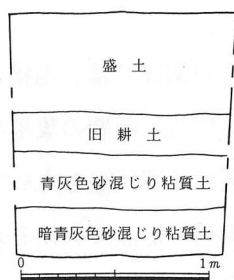 盛土
旧耕土
青灰色砂混じり粘質土
暗青灰色砂混じり粘質土
0 1m